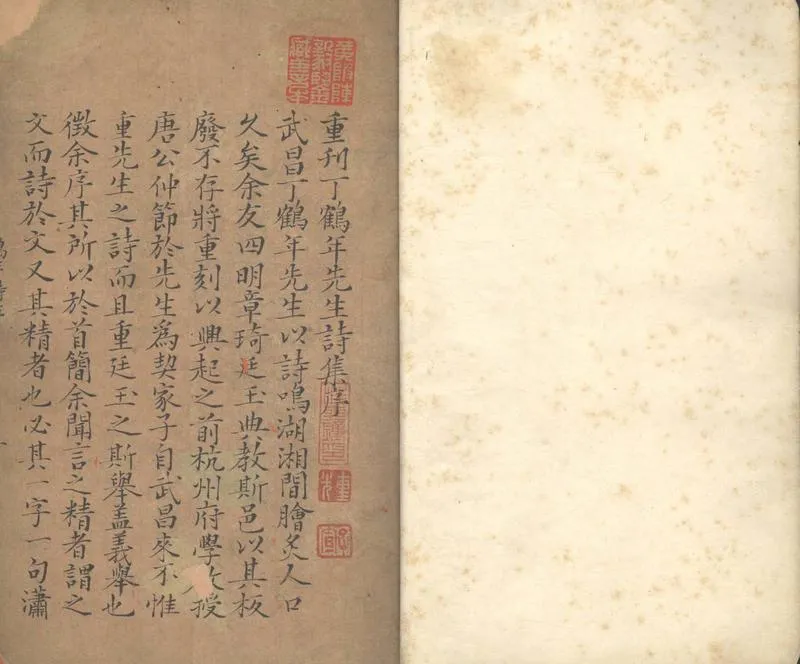 重刊丁鶴年先生詩集序
武昌丁鶴年先生以詩鳴湖湘間膾炙人口
久矣余友四明章琦廷玉典教斯邑以其板
廢不存將重刻以興起之前杭州府學教授
唐公仲節於先生為契家子自武昌來不惟
重先生之詩而且重廷玉之斯舉盖義舉也
徵余序其所以於首簡余聞言之精者謂之
文而詩於文又其精者也必其一字一句瀟